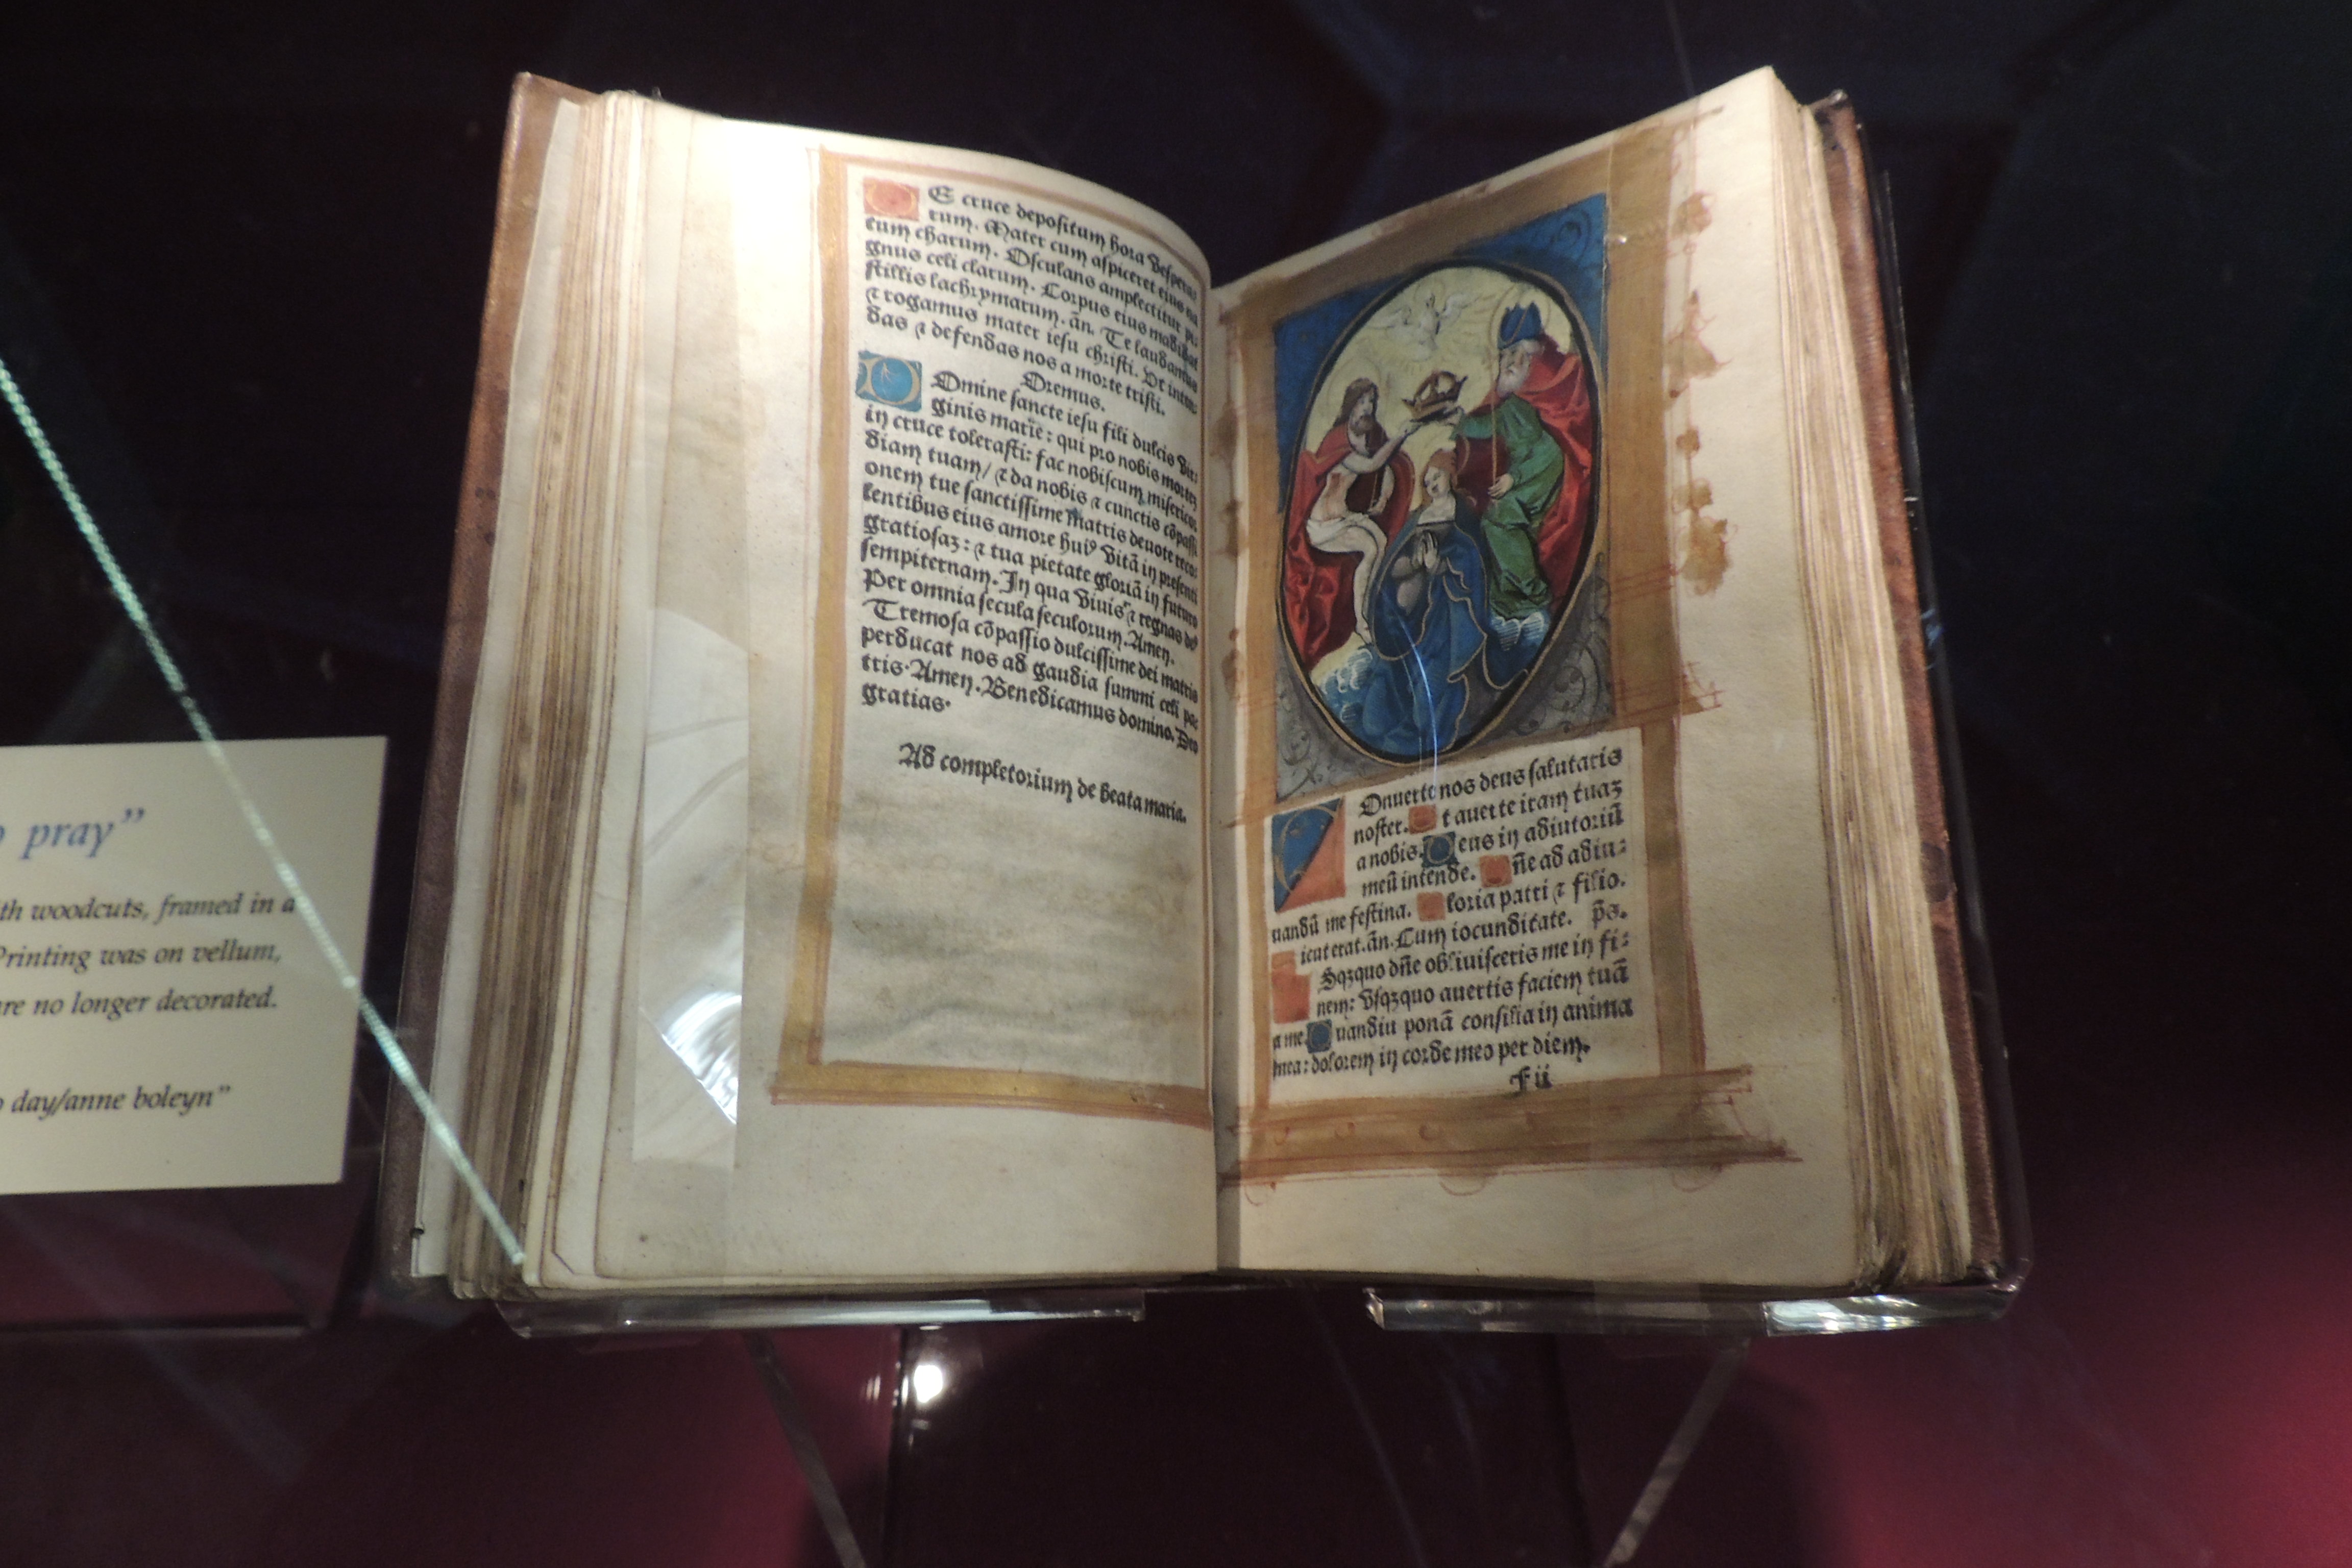 pray”
th woodcuts, framed in a
Printing was on vellum,
re no longer decorated.
day/anne boleyn”
E cruce depositum hora vesper
rum. Mater cum aspiceret eius na
tum charum. Osculans amplectitur pi
gnus celi clarum. Corpus eius madidat
stillis lachrymarum. añ. Te laudamus
⁊ rogamus mater iesu christi. Ut inten
das ⁊ defendas nos a morte tristi.
Oremus.
Domine sancte iesu fili dulcis vir
ginis marie: qui pro nobis mortem
in cruce tolerasti: fac nobiscum misericor
diam tuam/ ⁊ da nobis ⁊ cunctis cōpassi
onem tue sanctissime matris deuote reco
lentibus eius amore huiꝰ vitā in presenti
gratiosaz: ⁊ tua pietate gloriā in futuro
sempiternam. In qua viuis ⁊ regnas
Per omnia secula seculorum. Amen.
Tremosa cōpassio dulcissime dei matris
perducat nos ad gaudia summi celi pa
tris. Amen. Benedicamus domino. Deo
gratias.
Ad completorium de beata maria.
Onuerte nos deus salutaris
noster. t auerte iram tuaz
a nobis. Deus in adiutoriū
meū intende. ñe ad adiu:
uandū me festina. loria patri ⁊ filio.
icut erat. añ. Cum iocunditate. p̄s.
Sqzquo dñe obliuisceris me in fi:
nem: vsqzquo auertis faciem tuā
a me. Quandiu ponā consilia in anima
mea: dolorem in corde meo per diem.
F ii